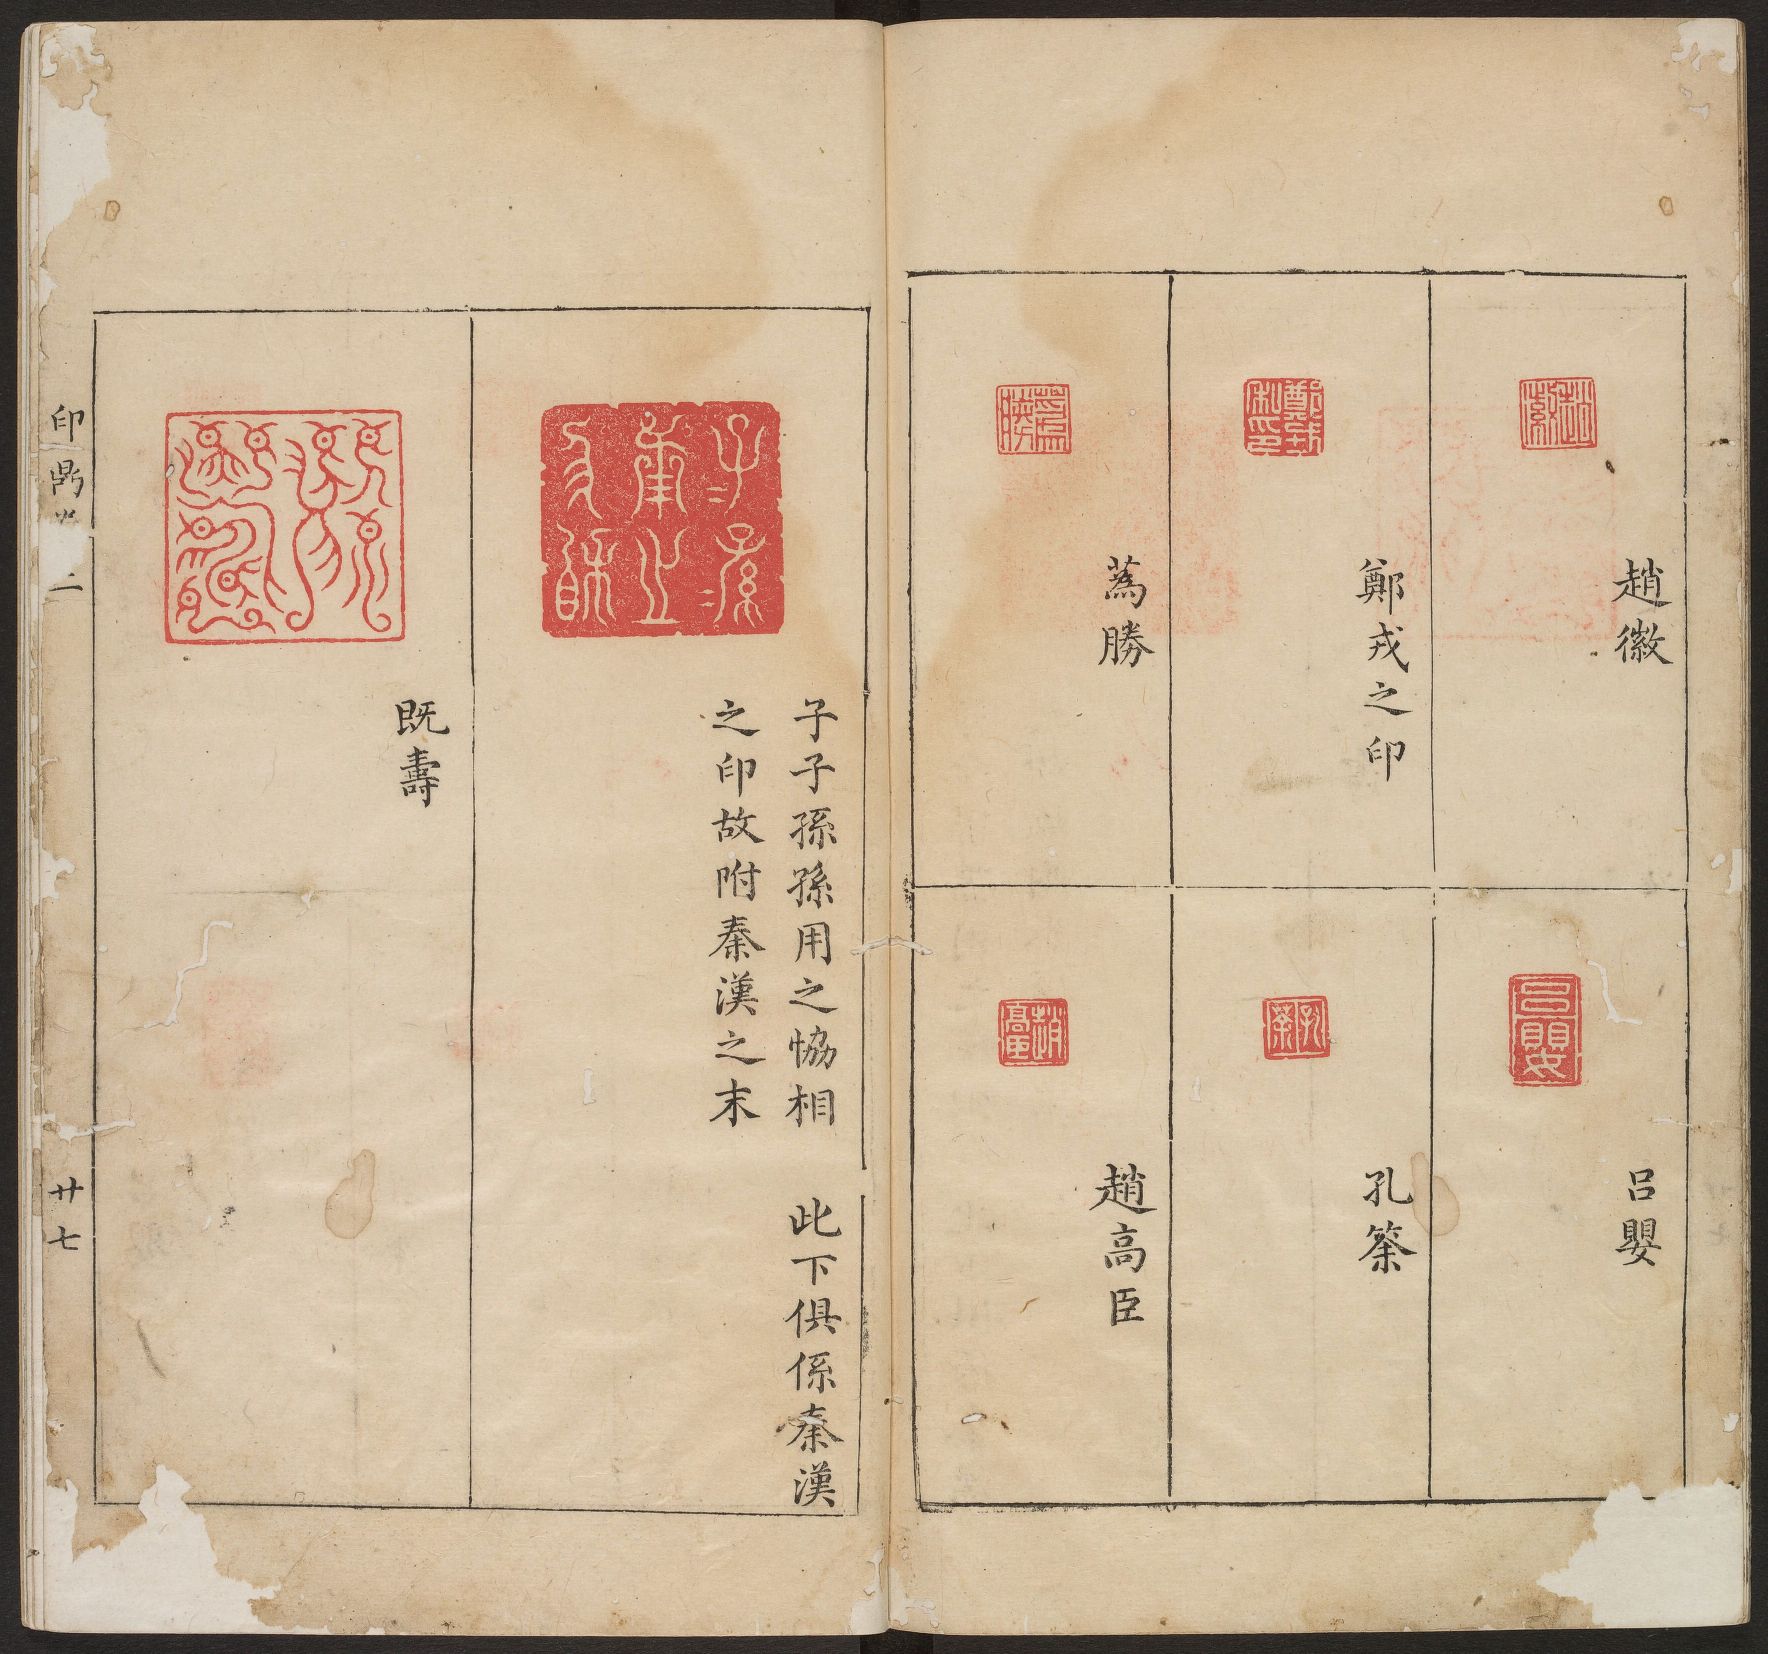 趙徽
鄭戎之印
蒍勝
呂嬰
孔築
趙高臣
子子孫孫用之協相
此下俱係秦漢
之印故附秦漢之末
既壽
印鼎
二
廿七